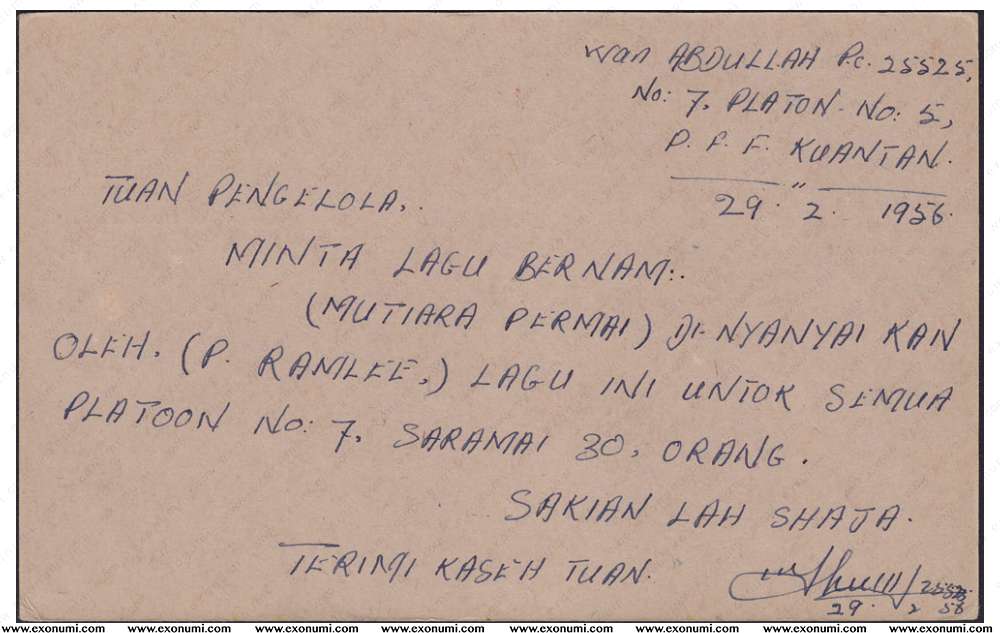 Wan ABDULLAH P.C. 25525,
No: 7, PLATON. No: 5,
P. F. F. KUANTAN.
29. 2. 1956.
TUAN PENGELOLA,.
MINTA LAGU BERNAM:.
(MUTIARA PERMAI) DI-NYANYAI KAN
OLEH. (P. RAMLEE,) LAGU INI UNTOK SEMUA
PLATOON No: 7, SARAMAI 30, ORANG.
SAKIAN LAH SHAJA.
TERIMI KASEH TUAN.
29. 2 56
www.exonumi.com www.exonumi.com www.exonumi.com www.exonumi.com www.exonumi.com www.exonumi.com www.exonumi.com www.exonumi.com